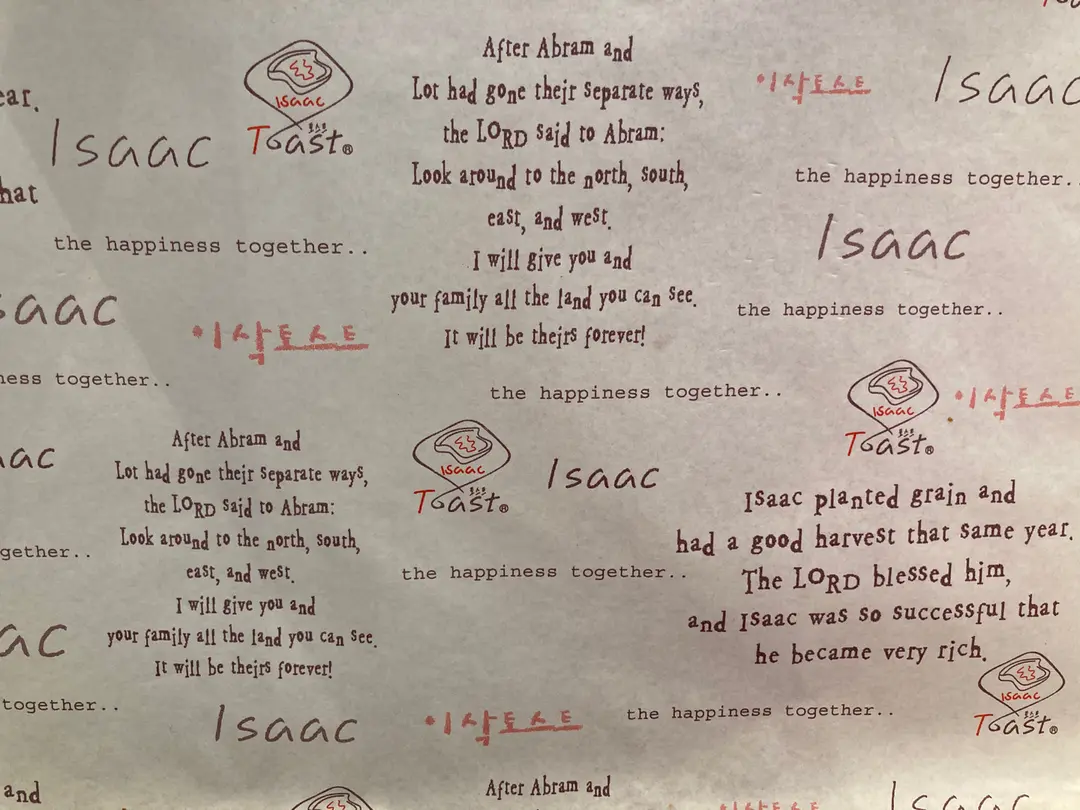 ear.
Isaac
hat
the happiness together..
Isaac
Toast®
After Abram and
Lot had gone their separate ways,
the LORD said to Abram:
Look around to the north, south,
east, and west.
I will give you and
your family all the land you can see.
It will be theirs forever!
이삭토스트
Isaac
the happiness together..
Isaac
the happiness together..
saac
이삭토스트
ness together..
the happiness together..
Isaac
Toast®
이삭토스트
aac
gether..
After Abram and
Lot had gone their separate ways,
the LORD said to Abram:
Look around to the north, south,
east, and west.
I will give you and
your family all the land you can see.
It will be theirs forever!
Isaac
토스트
Toast®
Isaac
the happiness together..
Isaac planted grain and
had a good harvest that same year.
The LORD blessed him,
and Isaac was so successful that
he became very rich.
ac
together..
Isaac
이삭토스트
the happiness together..
Isaac
Toast®
and
After Abram and
이삭토스트
Isaac